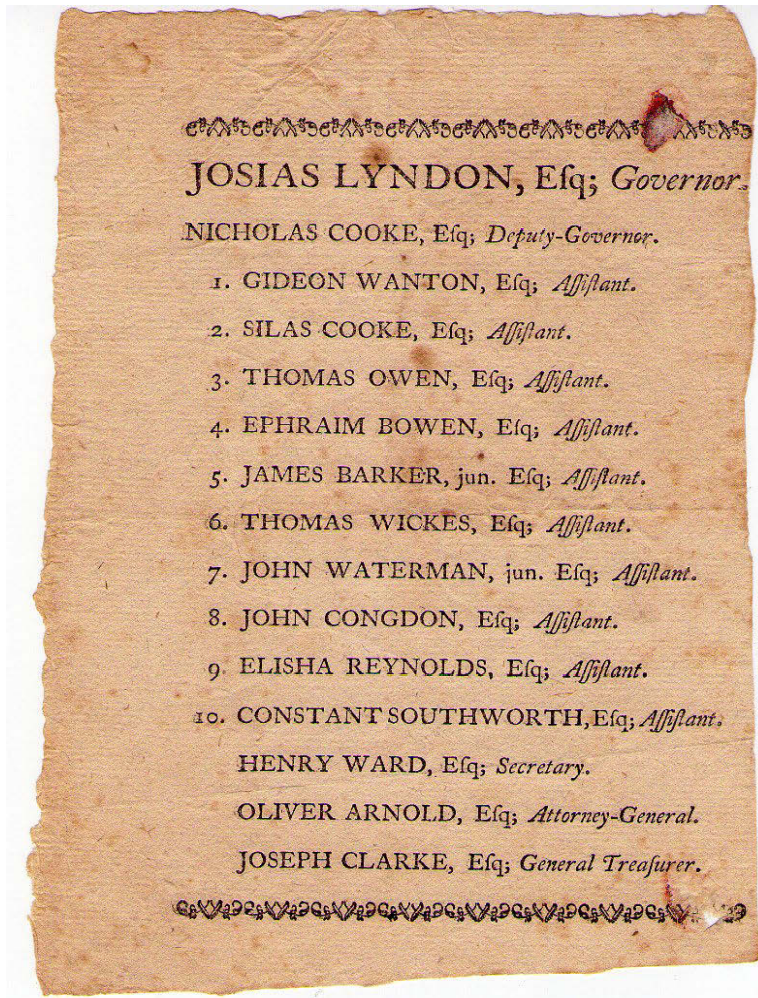 JOSIAS LYNDON, Eſq; Governor.
NICHOLAS COOKE, Eſq; Deputy-Governor.
1. GIDEON WANTON, Eſq; Aſſiſtant.
2. SILAS COOKE, Eſq; Aſſiſtant.
3. THOMAS OWEN, Eſq; Aſſiſtant.
4. EPHRAIM BOWEN, Eſq; Aſſiſtant.
5. JAMES BARKER, jun. Eſq; Aſſiſtant.
6. THOMAS WICKES, Eſq; Aſſiſtant.
7. JOHN WATERMAN, jun. Eſq; Aſſiſtant.
8. JOHN CONGDON, Eſq; Aſſiſtant.
9. ELISHA REYNOLDS, Eſq; Aſſiſtant.
10. CONSTANT SOUTHWORTH, Eſq; Aſſiſtant.
HENRY WARD, Eſq; Secretary.
OLIVER ARNOLD, Eſq; Attorney-General.
JOSEPH CLARKE, Eſq; General Treaſurer.